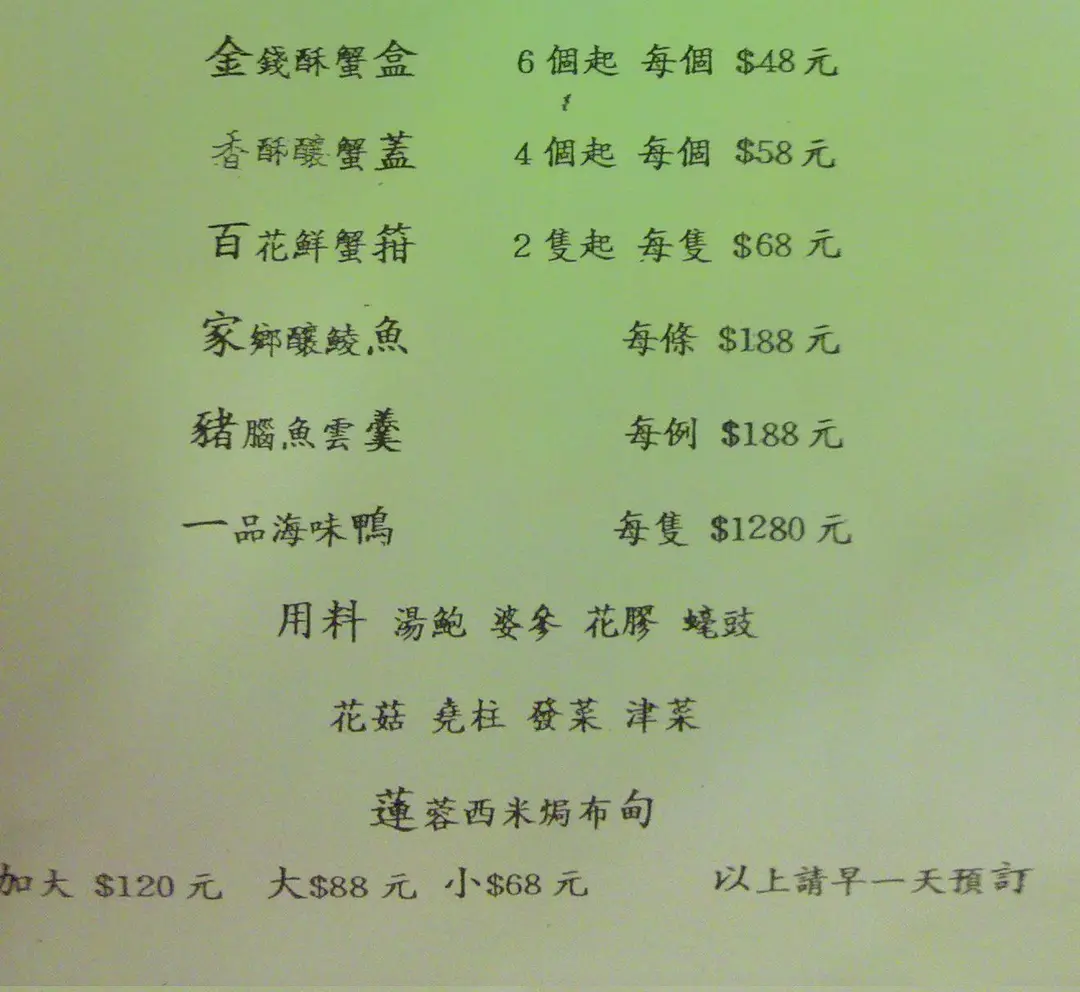 金錢酥蟹盒 6個起 每個 $48元
香酥釀蟹蓋 4個起 每個 $58元
百花鮮蟹箝 2隻起 每隻 $68元
家鄉釀鯪魚 每條 $188元
豬腦魚雲羹 每例 $188元
一品海味鴨 每隻 $1280元
用料 湯鮑 婆參 花膠 蠔豉
花菇 堯柱 發菜 津菜
蓮蓉西米焗布甸
加大 $120元 大$88元 小$68元 以上請早一天預訂